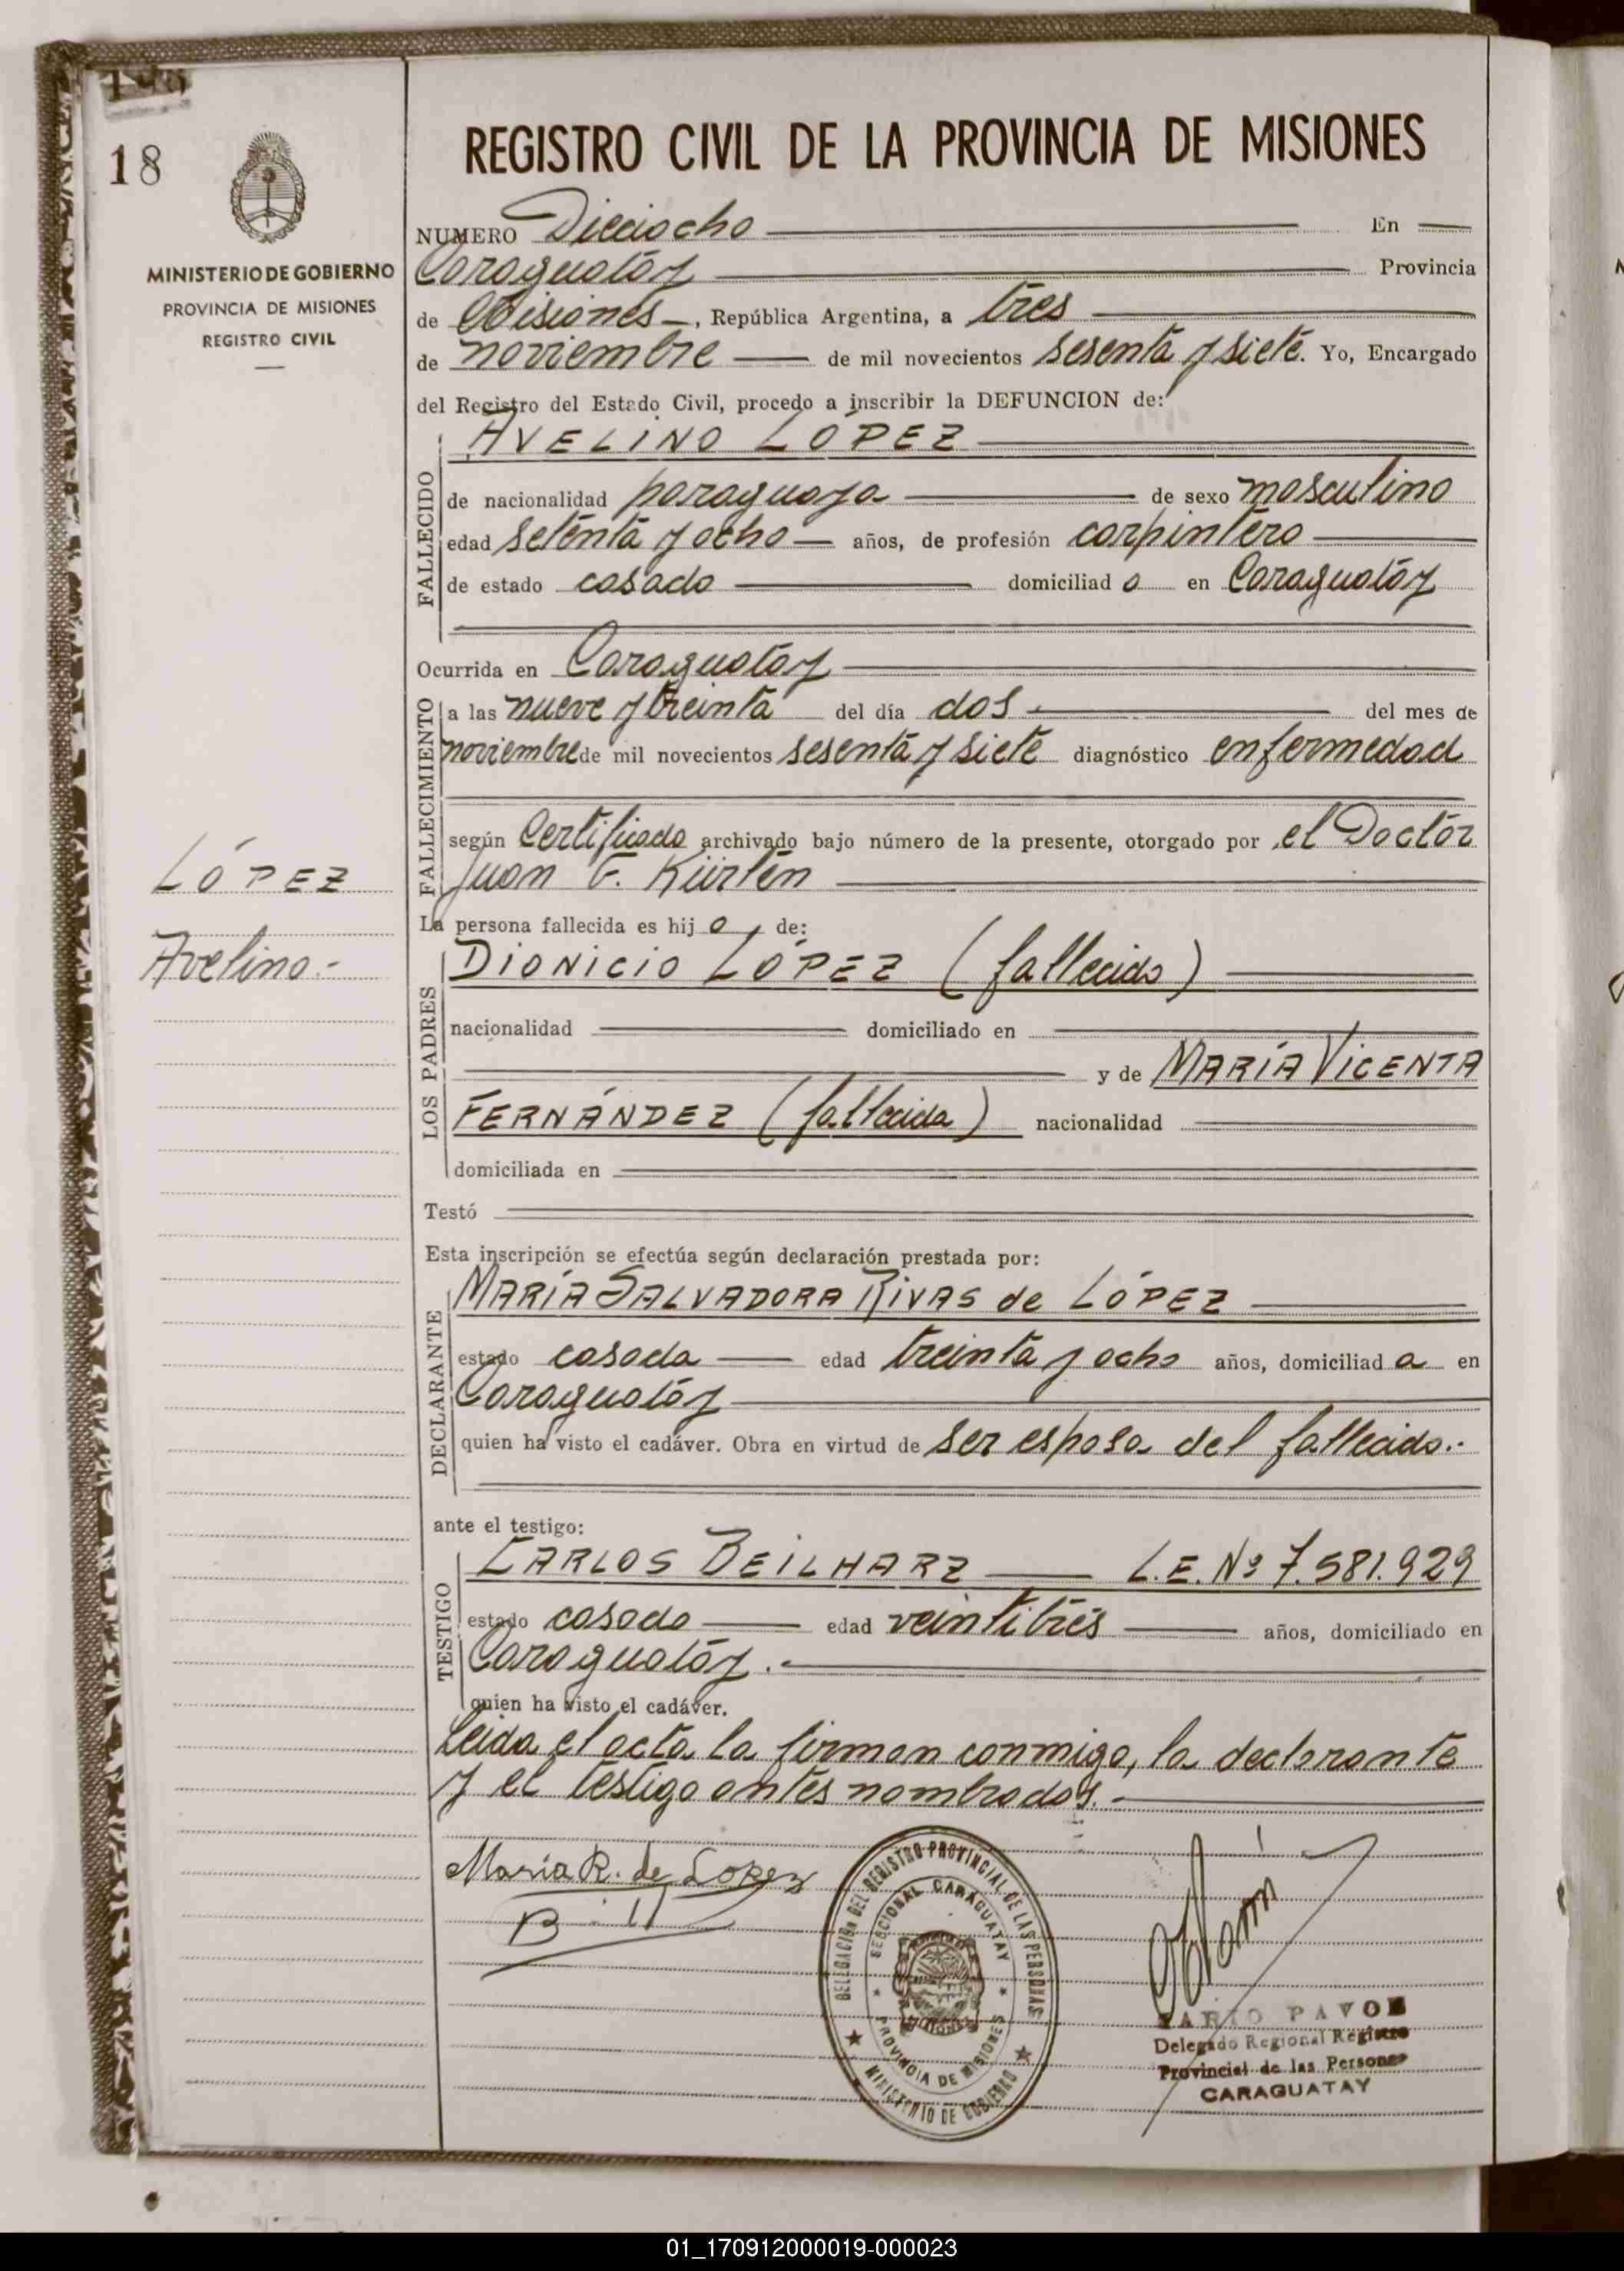 18
MINISTERIO DE GOBIERNO
PROVINCIA DE MISIONES
REGISTRO CIVIL
LÓPEZ
Avelino.-
REGISTRO CIVIL DE LA PROVINCIA DE MISIONES
NUMERO Dieciocho En
Caraguatáy Provincia
de Misiones, República Argentina, a tres
de noviembre de mil novecientos sesenta y siete. Yo, Encargado
del Registro del Estado Civil, procedo a inscribir la DEFUNCION de:
AVELINO LÓPEZ
FALLECIDO
de nacionalidad paraguaya de sexo masculino
edad setenta y ocho años, de profesión carpintero
de estado casado domiciliad o en Caraguatáy
Ocurrida en Caraguatáy
FALLECIMIENTO
a las nueve y treinta del día dos del mes de
noviembre de mil novecientos sesenta y siete diagnóstico enfermedad
según Certificado archivado bajo número de la presente, otorgado por el Doctor
Juan G. Kürten
La persona fallecida es hij o de:
LOS PADRES
DIONICIO LÓPEZ (fallecido)
nacionalidad domiciliado en
y de MARÍA VICENTA
FERNÁNDEZ (fallecida) nacionalidad
domiciliada en
Testó
Esta inscripción se efectúa según declaración prestada por:
DECLARANTE
MARÍA SALVADORA RIVAS de LÓPEZ
estado casada edad treinta y ocho años, domiciliad a en
Caraguatáy
quien ha visto el cadáver. Obra en virtud de ser esposa del fallecido.-
ante el testigo:
TESTIGO
CARLOS BEILHARZ L.E. Nº 7.581.929
estado casado edad veintitrés años, domiciliado en
Caraguatáy.-
quien ha visto el cadáver.
Leída el acta la firman conmigo, la declarante
y el testigo antes nombrados.-
María R. de Lopez
DELEGACION DEL REGISTRO PROVINCIAL DE LAS PERSONAS
SECCIONAL CARAGUATAY
MISIONES
PROVINCIA DE MISIONES
MINISTERIO DE GOBIERNO
PAVON
Delegado Regional Registro
Provincial de las Personas
CARAGUATAY
01_170912000019-000023